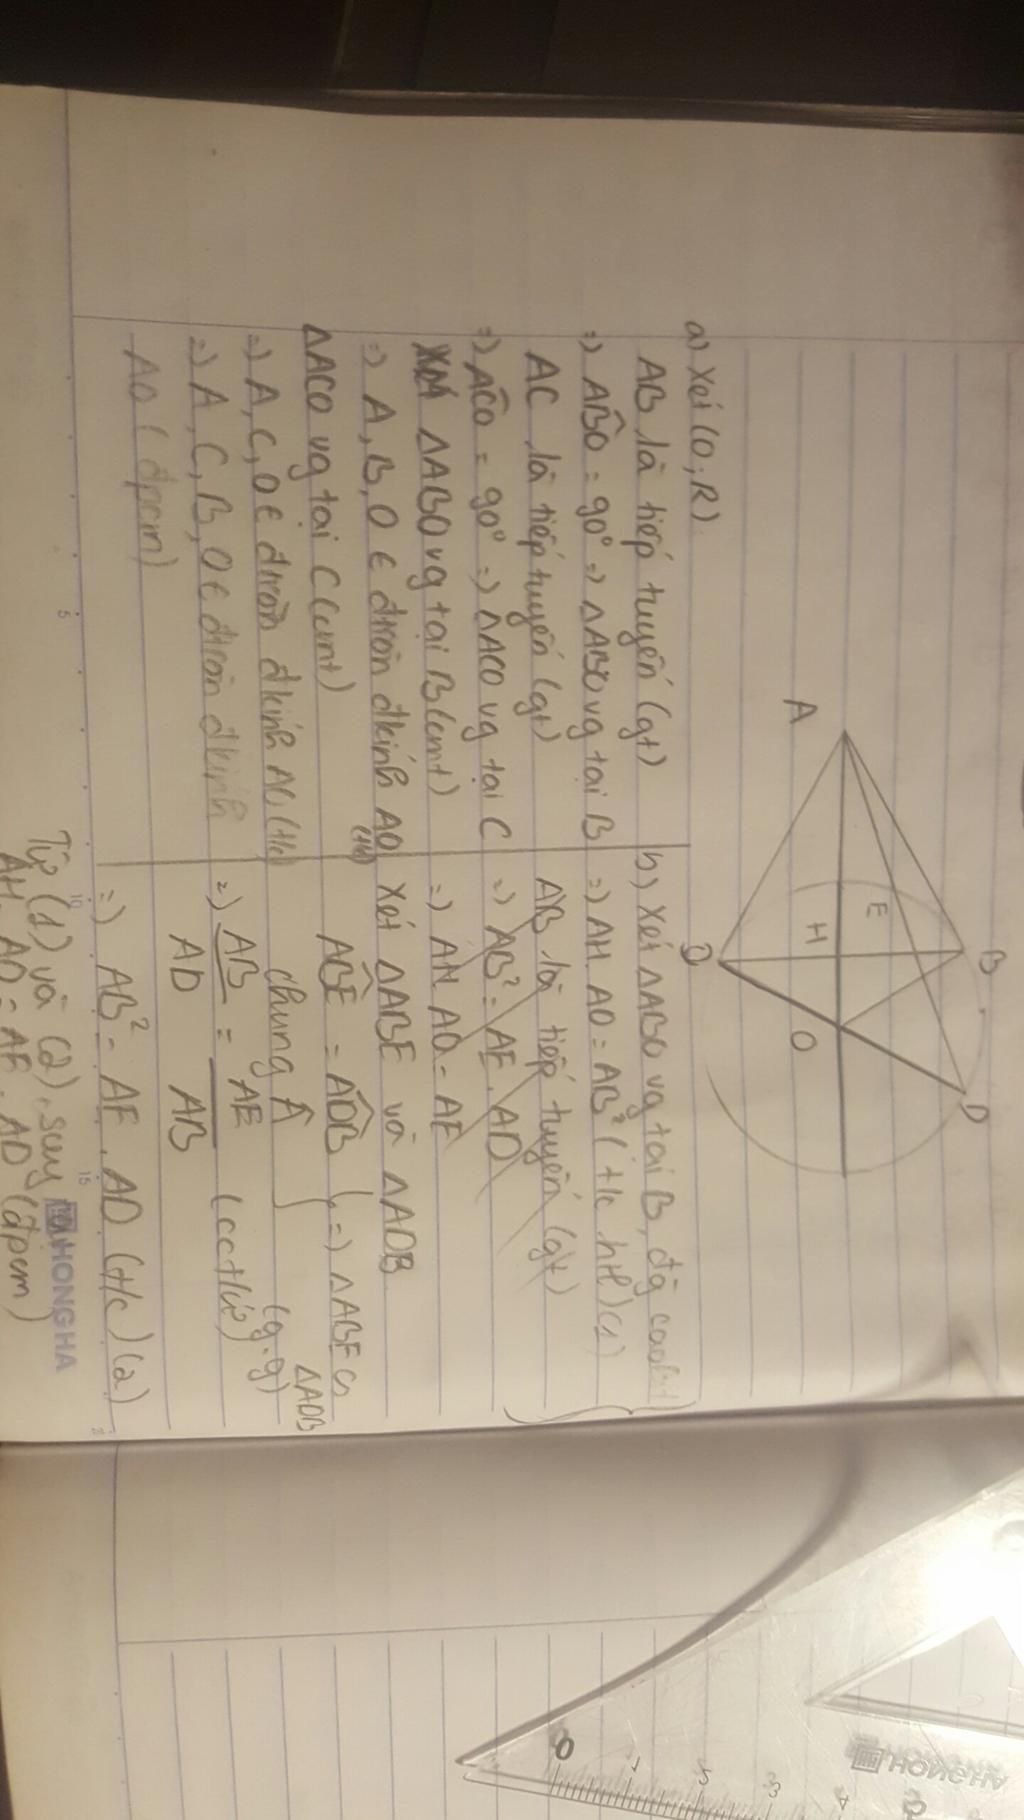 A
B
C
D
E
H
O
a) Xét (O; R)
AB là tiếp tuyến (gt)
=) ABO = 90° => ΔABO vg tại B
AC là tiếp tuyến (gt)
=) ACO = 90° =) ΔACO vg tại C
Xét ΔABO vg tại B (cmt)
=) A, B, O ∈ đtròn đkính AO (t/c)
ΔACO vg tại C (cmt)
=) A, C, O ∈ đtròn đkính AO (t/c)
=) A, C, B, O ∈ đtròn đkính
AO (đpcm)
b) Xét ΔABO vg tại B, đg cao
=) AH. AO = AB² (t/c htl) (1)
AB là tiếp tuyến (gt)
=) AB² = AE. AD
=) AH. AO = AE
Xét ΔABE và ΔADB
ABE = ADB
chung A
=) ΔABE ᔕ ΔADB
(g.g)
=) AB/AD = AE/AB (cctlư)
=) AB² = AE. AD (t/c) (2)
Từ (1) và (2), suy ra
AH. AO = AE. AD (đpcm)
HONG HA
5
10
15
0
1
3
4